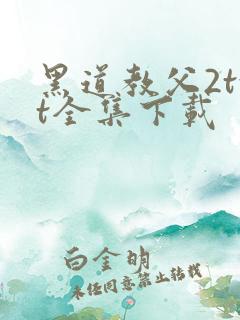 黑道教父2tx
t全集下载
白金明
未经同意禁止转载